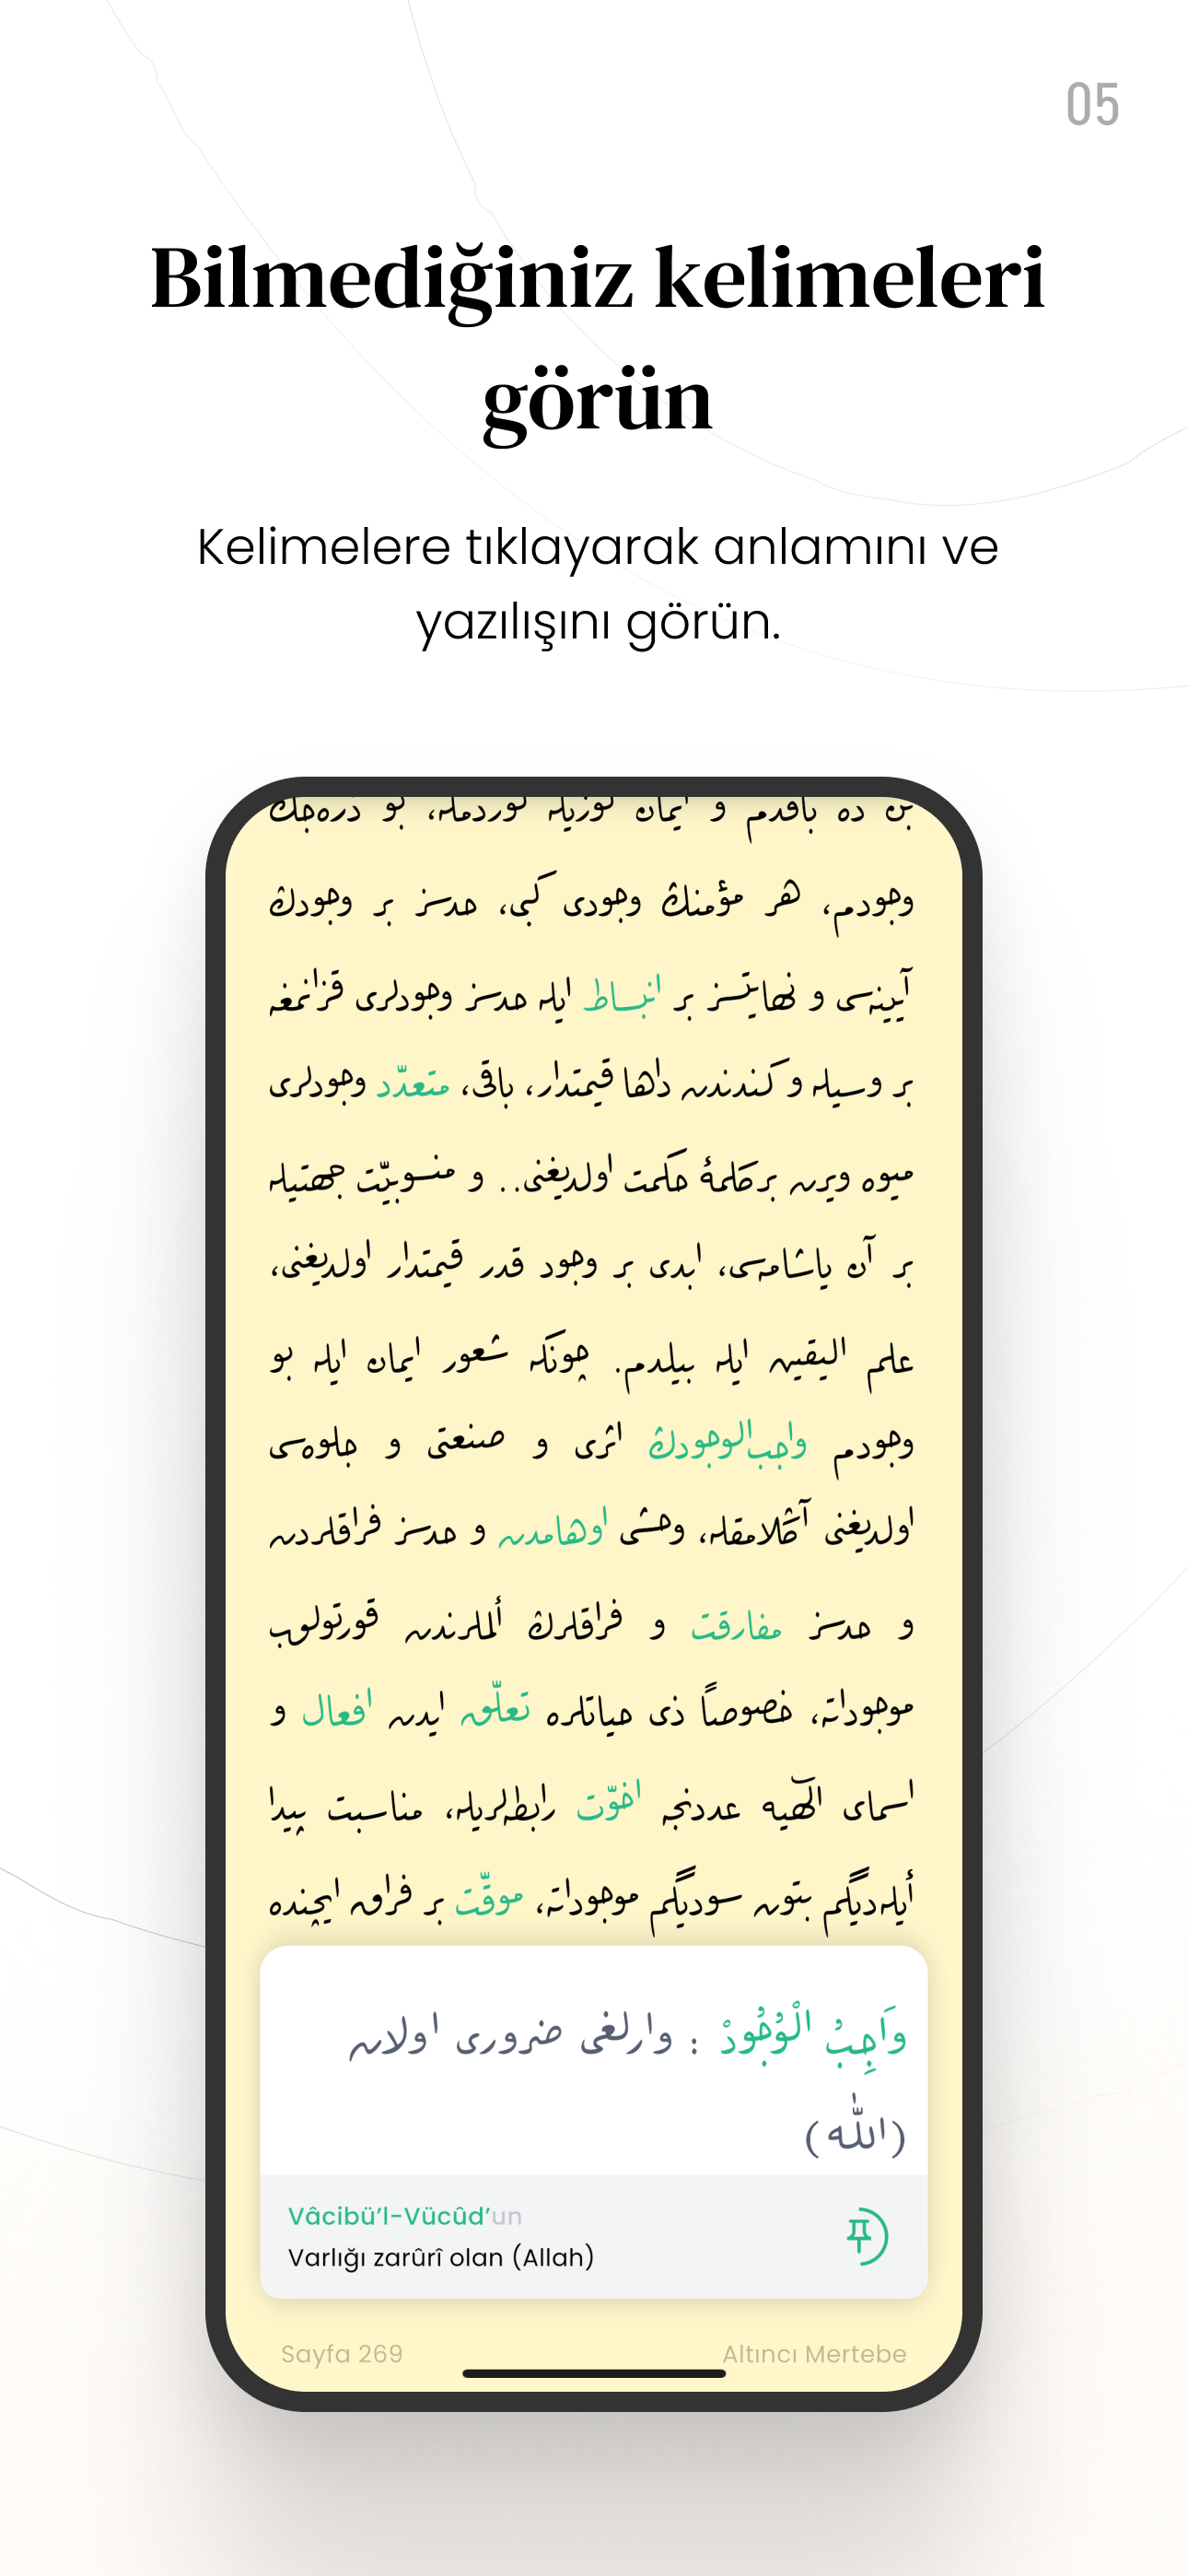 05
Bilmediğiniz kelimeleri
görün
Kelimelere tıklayarak anlamını ve
yazılışını görün.
بن ده باقدم و ایمان گوزیله گوردمكه، بو ذره‌جك
وجودم، هر مؤمنڭ وجودی كبی، حدسز بر وجودڭ
آیینه‌سی و نهایتسز بر انبساط ایله حدسز وجودلری قزانمغه
بر وسیله و كندندن داها قیمتدار، باقی، متعدّد وجودلری
میوه ویرن بر كلمۀ حكمت اولدیغنی.. و منسوبیّت جهتیله
بر آن یاشامه‌سی، ابدی بر وجود قدر قیمتدار اولدیغنی،
علم الیقین ایله بیلدم. چونكه شعور ایمان ایله بو
وجودم واجب‌الوجودڭ اثری و صنعتی و جلوه‌سی
اولدیغنی آڭلامقله، وحشی اوهامدن و حدسز فراقلردن
و حدسز مفارقت و فراقلرڭ ألملرندن قورتولوب
موجوداته، خصوصاً ذی حیاتلره تعلّق ایدن افعال و
اسمای الٰهیه عددنجه اخوّت رابطه‌لریله، مناسبت پیدا
أیله‌دیگم بتون سودیگم موجوداته، موقّت بر فراق ایچنده
وَاجِبُ الْوُجُودْ : وارلغی ضروری اولان
(اللّٰه)
Vâcibü’l-Vücûd’un
Varlığı zarûrî olan (Allah)
Sayfa 269
Altıncı Mertebe